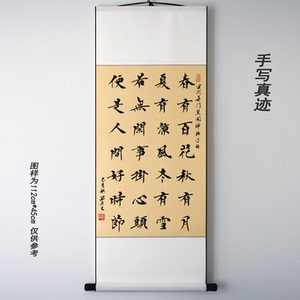 手写真迹
春有百花秋有月
夏有凉风冬有雪
若無閑事掛心頭
便是人間好時節
图样为112cm*45cm 仅供参考